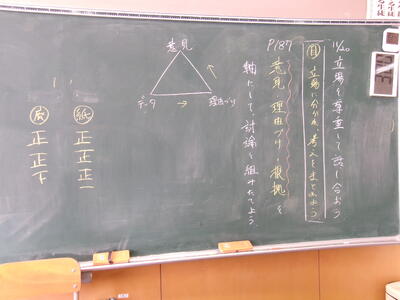 11/20 立場を尊重して話し合おう
目 立場に分かれ、考えをまとめよう
P187
意見・理由づけ・根拠を
軸にして討論を組みたてよう。
意見
データ → 理由づけ
紙 正正正一
正正下